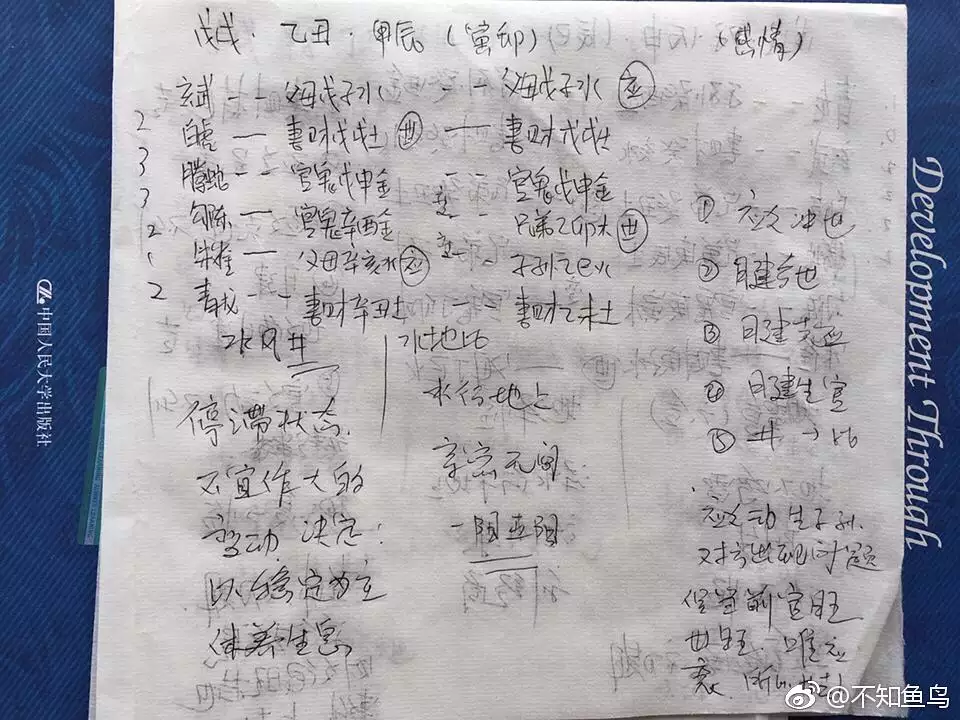 戊戌·乙丑·甲辰(寅卯) (感情)
玄武 -- 父母戊子水 -- 父母戊子水 应
2 白虎 — 妻财戊戌土 世 — 妻财戊戌土
3 腾蛇 -- 官鬼戊申金 -- 官鬼戊申金
3 勾陈 — 官鬼辛酉金 -- 兄弟乙卯木 世
2 朱雀 — 父母辛亥水 应 -- 子孙乙巳火
2 青龙 -- 妻财辛丑土 -- 妻财乙未土
水风井
水地比
停滞状态
不宜作大的
变动 决定:
以稳定为主
休养生息
水行地上
亲密无间
一阳五阴
① 应爻冲世
② 日建合世
③ 日建克应
④ 日建生官
⑤ 井→比
应爻动生子孙
对方出现问题
但当前官旺
世旺 唯应
衰
中国人民大学出版社
Development Through
@不知鱼鸟